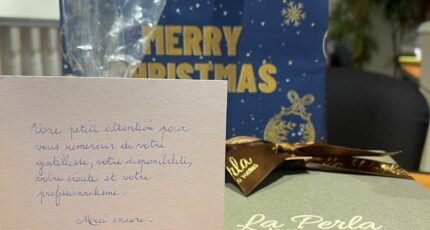 MERRY
CHRISTMAS
Une petite attention pour
vous remercier de votre
gentillesse, votre disponibilité,
votre écoute et votre
professionnalisme.
Merci encore.
Perla
La Perla